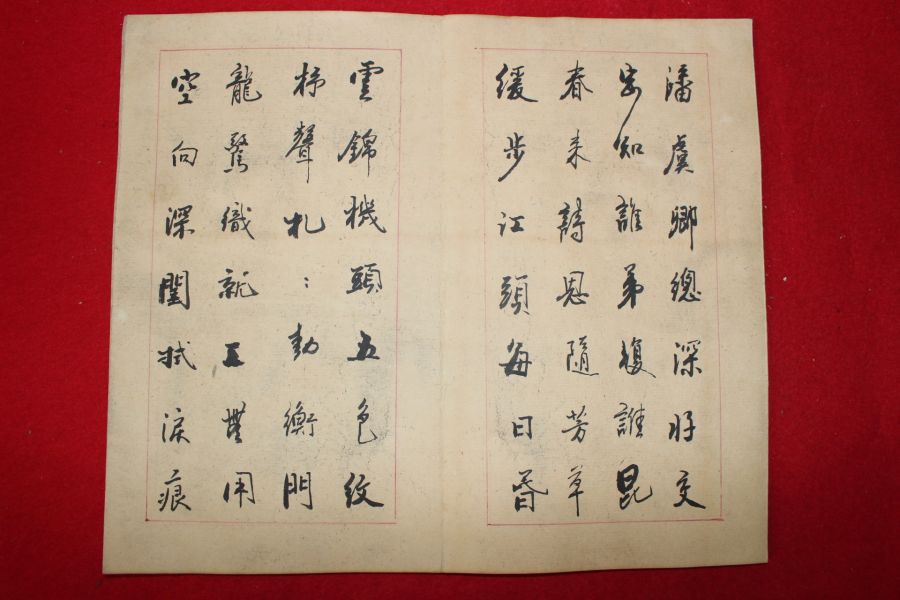 潘虞卿總深好交
安知誰弟復誰昆
春来詩思隨芳草
緩步江頭每日昏
雲錦機頭五色紋
杼聲札：動衡門
龍鸞織就工無用
空向深閨拭淚痕